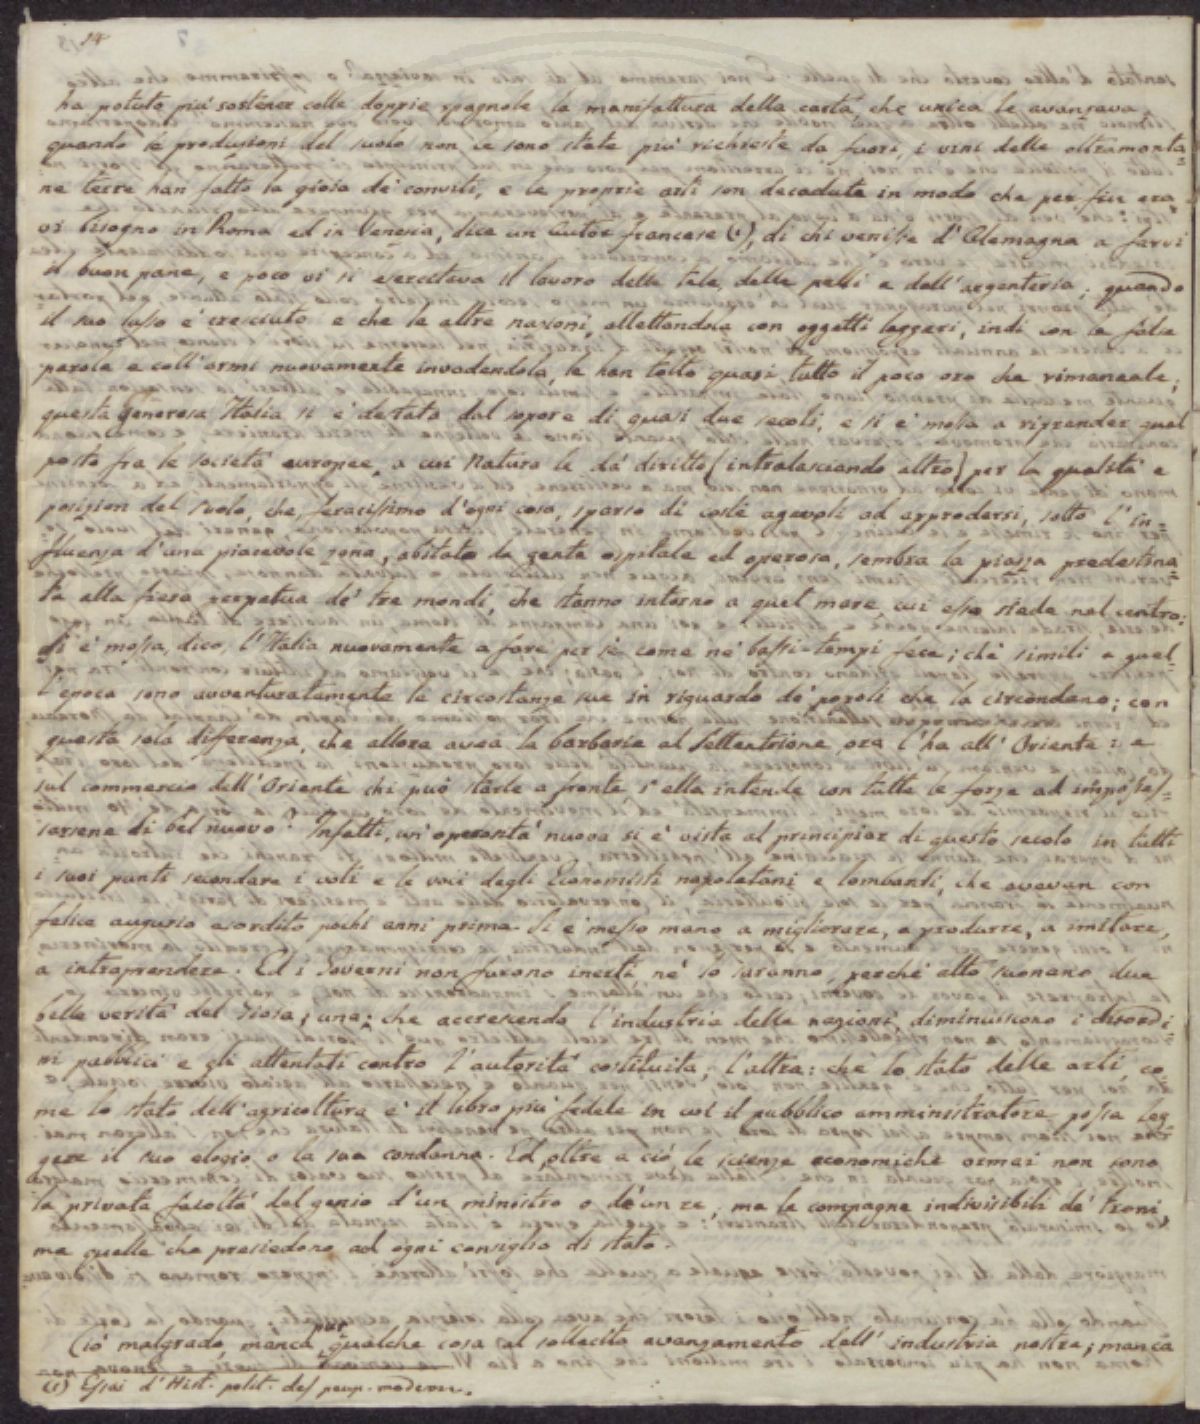 14
ha potuto più sostener colle doppie spagnole la manifattura della carta, che unica le avanzava,
quando le produzioni del suolo non le sono state più richieste da fuori, i vini delle oltramonta=
ne terre han fatto la gioia de' conviti, e le proprie arti son decadute in modo che per fin era
vi bisogno in Roma ed in Venezia, dice un Autor francese (1), di chi venisse d'Alemagna a farvi
il buon pane, e poco vi si esercitava il lavoro delle tele, delle pelli e dell'argenteria; quando
il suo lusso è cresciuto e che le altre nazioni, allettandola con oggetti leggeri, indi con le false
parole e coll'armi nuovamente invadendola, le han tolto quasi tutto il poco oro che rimaneale;
questa generosa Italia si è destata dal sopore di quasi due secoli, e si è mossa a riprender quel
posto fra le società europee, a cui Natura le dà diritto (intralasciando altro) per la qualità e
posizion del suolo, che, feracissimo d'ogni cosa, sparso di coste agevoli ad approdersi, sotto l'in=
fluenza d'una piacevole zona, abitato da gente ospitale ed operosa, sembra la piazza predestina=
ta alla fiera perpetua de' tre mondi, che stanno intorno a quel mare cui essa siede nel centro:
si è mossa, dico, l'Italia nuovamente a fare per sè come ne' bassi-tempi fece; chè simili a quel=
l'epoca sono avventuratamente le circostanze sue in riguardo de' popoli che la circondano; con
questa sola differenza, che allora avea la barbarie al Settentrione, ora l'ha all'Oriente: e
sul commercio dell'Oriente chi può starle a fronte s'ella intende con tutte le forze ad imposses=
sarsene di bel nuovo? Infatti, un'operosità nuova si è vista al principiar di questo secolo in tutti
i suoi punti secondare i voti e le voci degli Economisti napoletani e lombardi, che avevan con
felice augurio esordito pochi anni prima. Si è messo mano a migliorare, a produrre, a imitare,
a intraprendere. Ed i Governi non furono inerti, nè lo saranno, perchè alto suonano due
belle verità del Gioja; una: che accrescendo l'industria delle nazioni, diminuiscono i disordi=
ni pubblici e gli attentati contro l'autorità costituita; l'altra: che lo stato delle arti, co
me lo stato dell'agricoltura è il libro più fedele in cui il pubblico amministratore possa leg=
gere il suo elogio o la sua condanna. Ed, oltre a ciò, le scienze economiche ormai non sono
la privata facoltà del genio d'un ministro o d'un re, ma le compagne indivisibili de' troni,
ma quelle che presiedono ad ogni consiglio di stato.
Ciò malgrado, manca pur qualche cosa al sollecito avanzamento dell'industria nostra; manca
(1) Essai d'Hist. polit. des peup. modern.